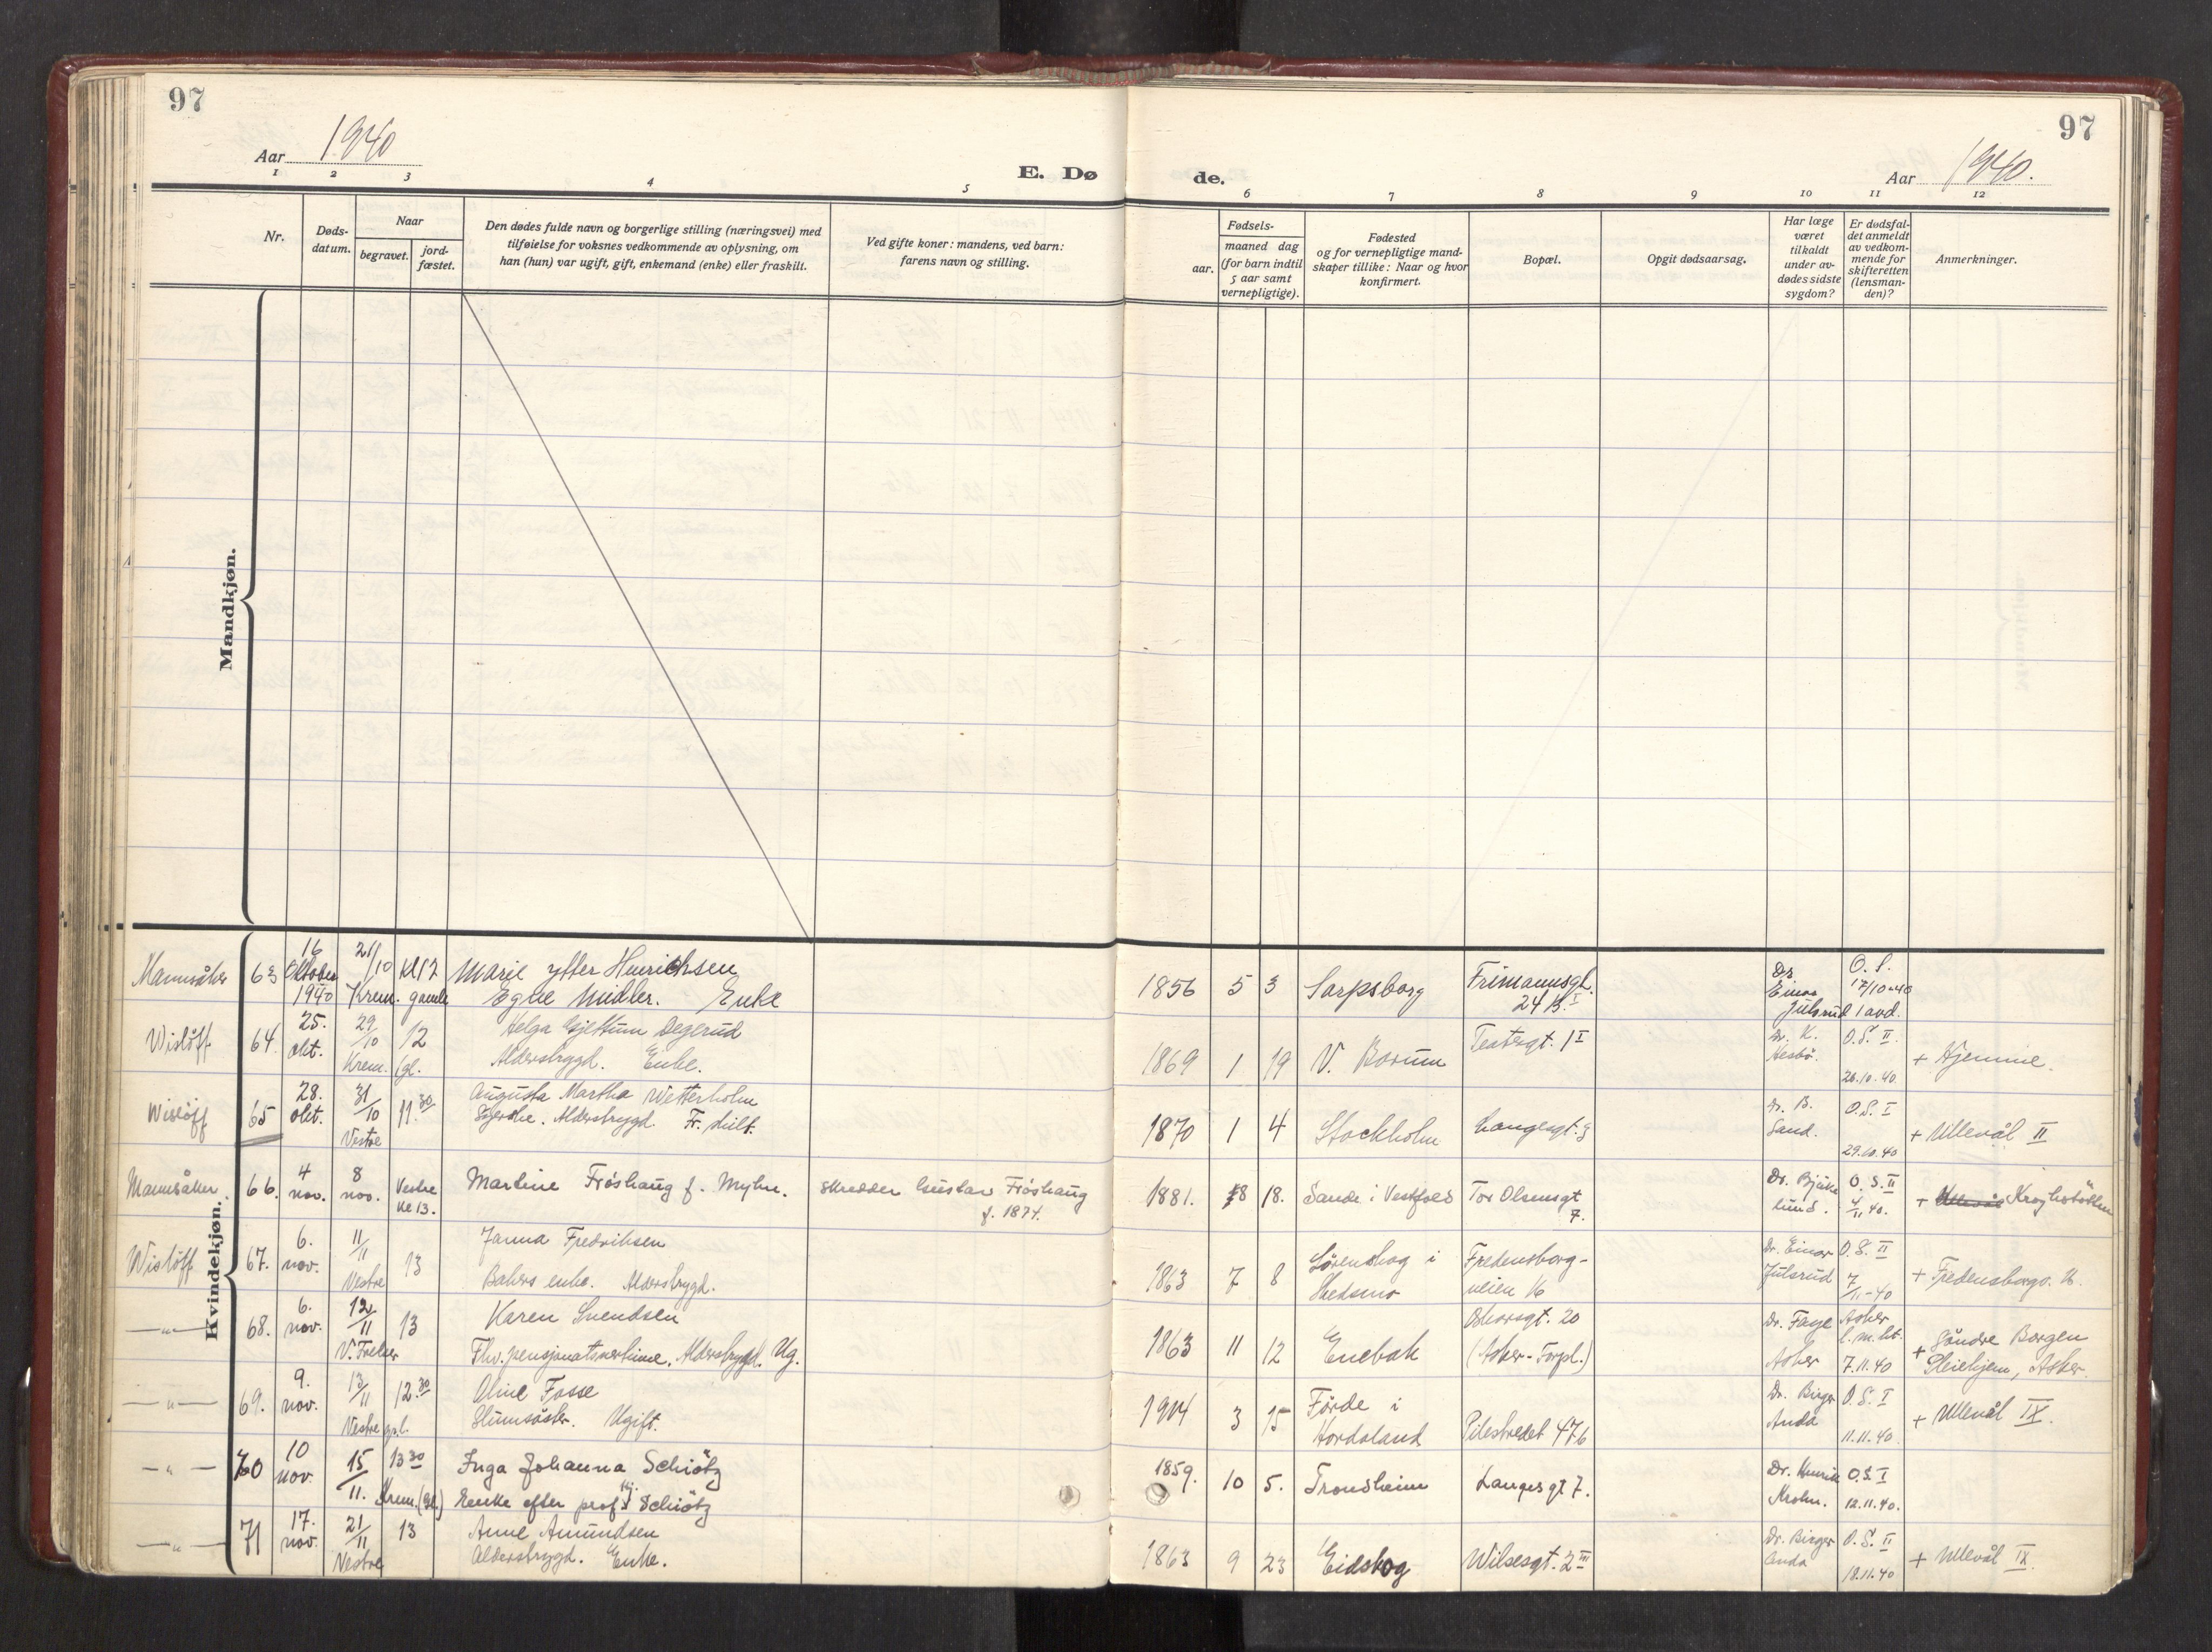 97
97
Aar 1940
E. Dø
de.
Aar 1940.
1 2 3 4 5 6 7 8 9 10 11 12
Nr.
Døds-
datum.
Naar
begravet.
jord-
fæstet.
Den dødes fulde navn og borgerlige stilling (næringsvei) med
tilføielse for voksnes vedkommende av oplysning, om
han (hun) var ugift, gift, enkemand (enke) eller fraskilt.
Ved gifte koner: mandens, ved barn:
farens navn og stilling.
Fødsels-
aar.
maaned dag
(for barn indtil
5 aar samt
vernepligtige).
Fødested
og for vernepligtige mand-
skaper tillike: Naar og hvor
konfirmert.
Bopæl.
Opgit dødsaarsag.
Har læge
været
tilkaldt
under av-
dødes sidste
sygdom?
Er dødsfal-
det anmeldt
av vedkom-
mende for
skifteretten
(lensman-
den)?
Anmerkninger.
Mandkjøn.
Kvindekjøn.
Mannsåker 63 16 Oktober 1940 21/10 Krem. gamle Kl 12
Marie Hinrichsen
Egne midler. Enke
1856 5 3 Sarpsborg Frimannsgt. 24 B. I
Dr. Einar Julsrud O.S. 17/10-40 1 avd.
Wislöff 64 25. okt. 29/10 Krem. (gl. 12
Helga Gjettum Degerud
Alderstrygd. Enke.
1869 1 19 V. Bærum Teatergt. 1 I
Dr. K. O.S. II 26.10.40. + Hjemme.
Wislöff 65 28. okt. 31/10 Vestre 11.30
Augusta Martha Wetterholm
Alderstrygd. Fr. skilt.
1870 1 4 Stockholm Langesgt. 3
Dr. B. Sand. O.S. I 29.10.40 + Ullevål II
Mannsåker 66. 4 nov. 8 nov. Vestre Kl 13.
Martine Fröshaug f. Myhre. Skredder Gustav Fröshaug
f. 1874.
1881. 8 18. Sande i Vestfold Tor Olsensgt 7.
Dr. Bjerke lund. O.S. II 4/11 40. + Ullevål Krohgstötten
Wislöff 67. 6. nov. 11/11 Vestre 13
Janna Fredriksen
Bakers enke. Alderstrygd.
1863 7 8 Sörenskog i Skedsmo Fredensborg-
veien 16
Dr. Einar Julsrud O.S. II 7/11-40 + Fredensborgv. 16.
—"— 68. 6. nov. 12/11 V. Frelser 13
Karen Svendsen
Fhv. pensjonatsvertinne. Alderstrygd. Ug.
1863 11 12 Enebak Oscarsgt. 20
(Asker-Torpl.)
Dr. Faye Asker Asker l.m.kt. 7.11.40 + Söndre Borgen
Pleiehjem, Asker.
—"— 69. 9. nov. 13/11 Vestre gr.l. 12.30
Oline Fosse
Slumsöster. Ugift.
1904 3 15 Förde i Hordaland Pilestredet 47b
Dr. Birger Anda O.S. I 11.11.40 + Ullevål IX.
—"— 70 10 nov. 15/11. Krem. (gl.) 13.30
Inga Johanna Schiötz
Enke efter prof. Hj. Schiötz
1859. 10 5. Trondheim Langesgt 7.
Dr. Henrik Krohn. O.S. I 12.11.40.
—"— 71 17. nov. 21/11 Vestre 13
Anne Amundsen
Alderstrygd. Enke.
1863 9 23 Eidskog Wilsesgt. 2 III
Dr. Birger Anda O.S. II 18.11.40 + Ullevål IX.